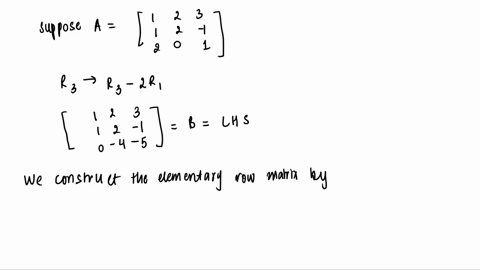 suppose A = [ 1 2 3
1 2 -1
2 0 1 ]
R3 → R3 - 2R1
[ 1 2 3
1 2 -1 ] = B = LHS
0 -4 -5
We construct the elementary row matrix by